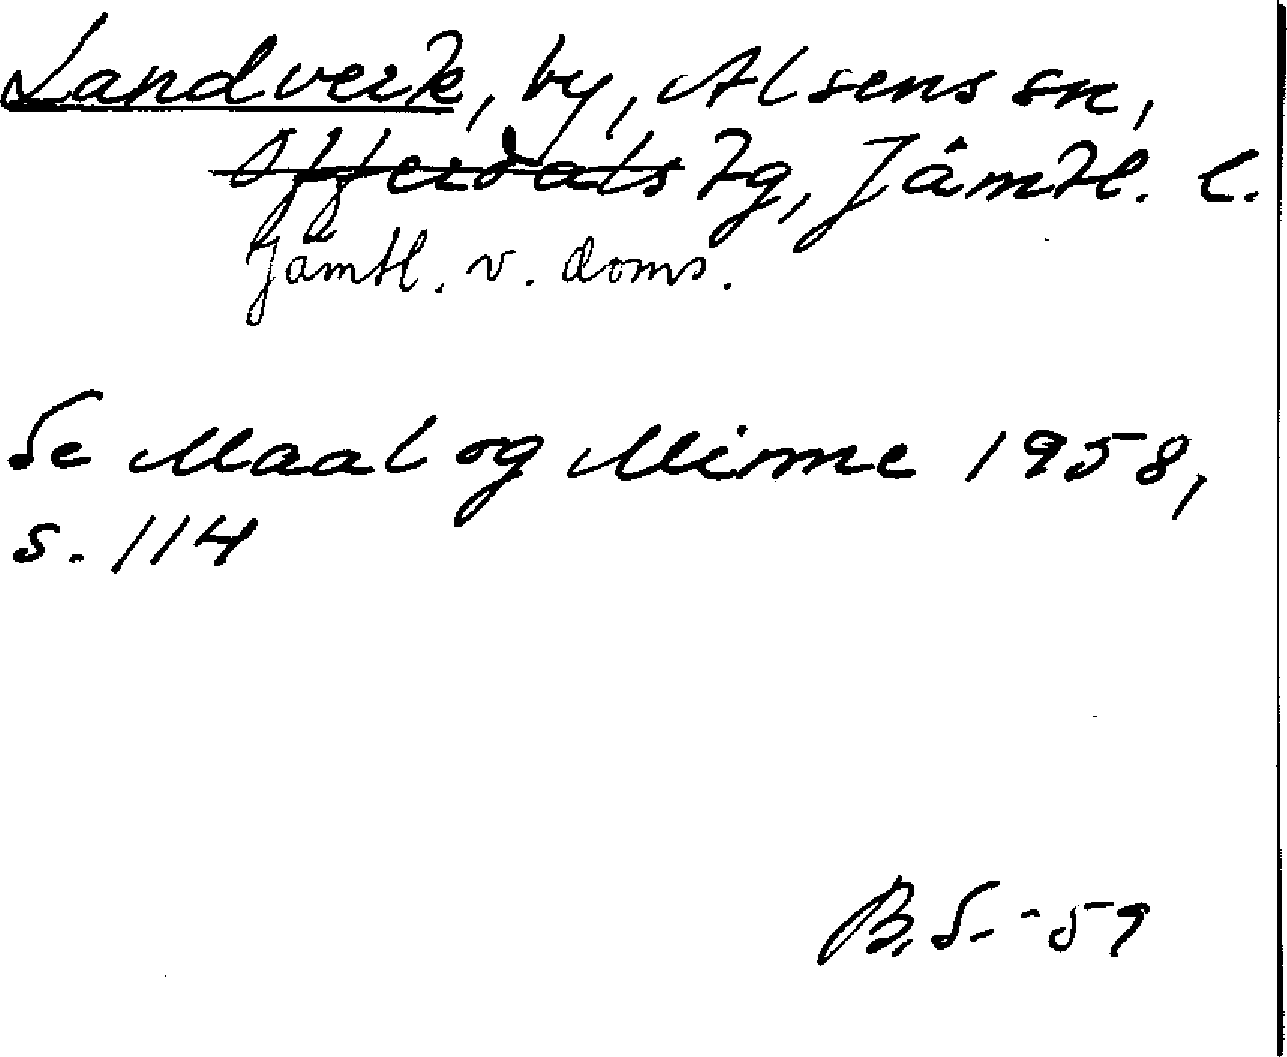 Landverk, by, Alsens sn,
Offerdals tg, Jämtl. l.
Jämtl. v. doms.
Se Maal og Minne 1958,
s. 114
B. S. -59